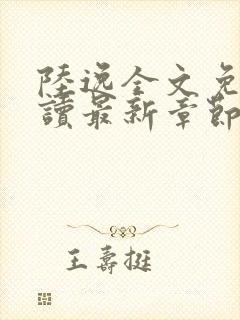 陸逸全文免
讀最新章節
王壽挺